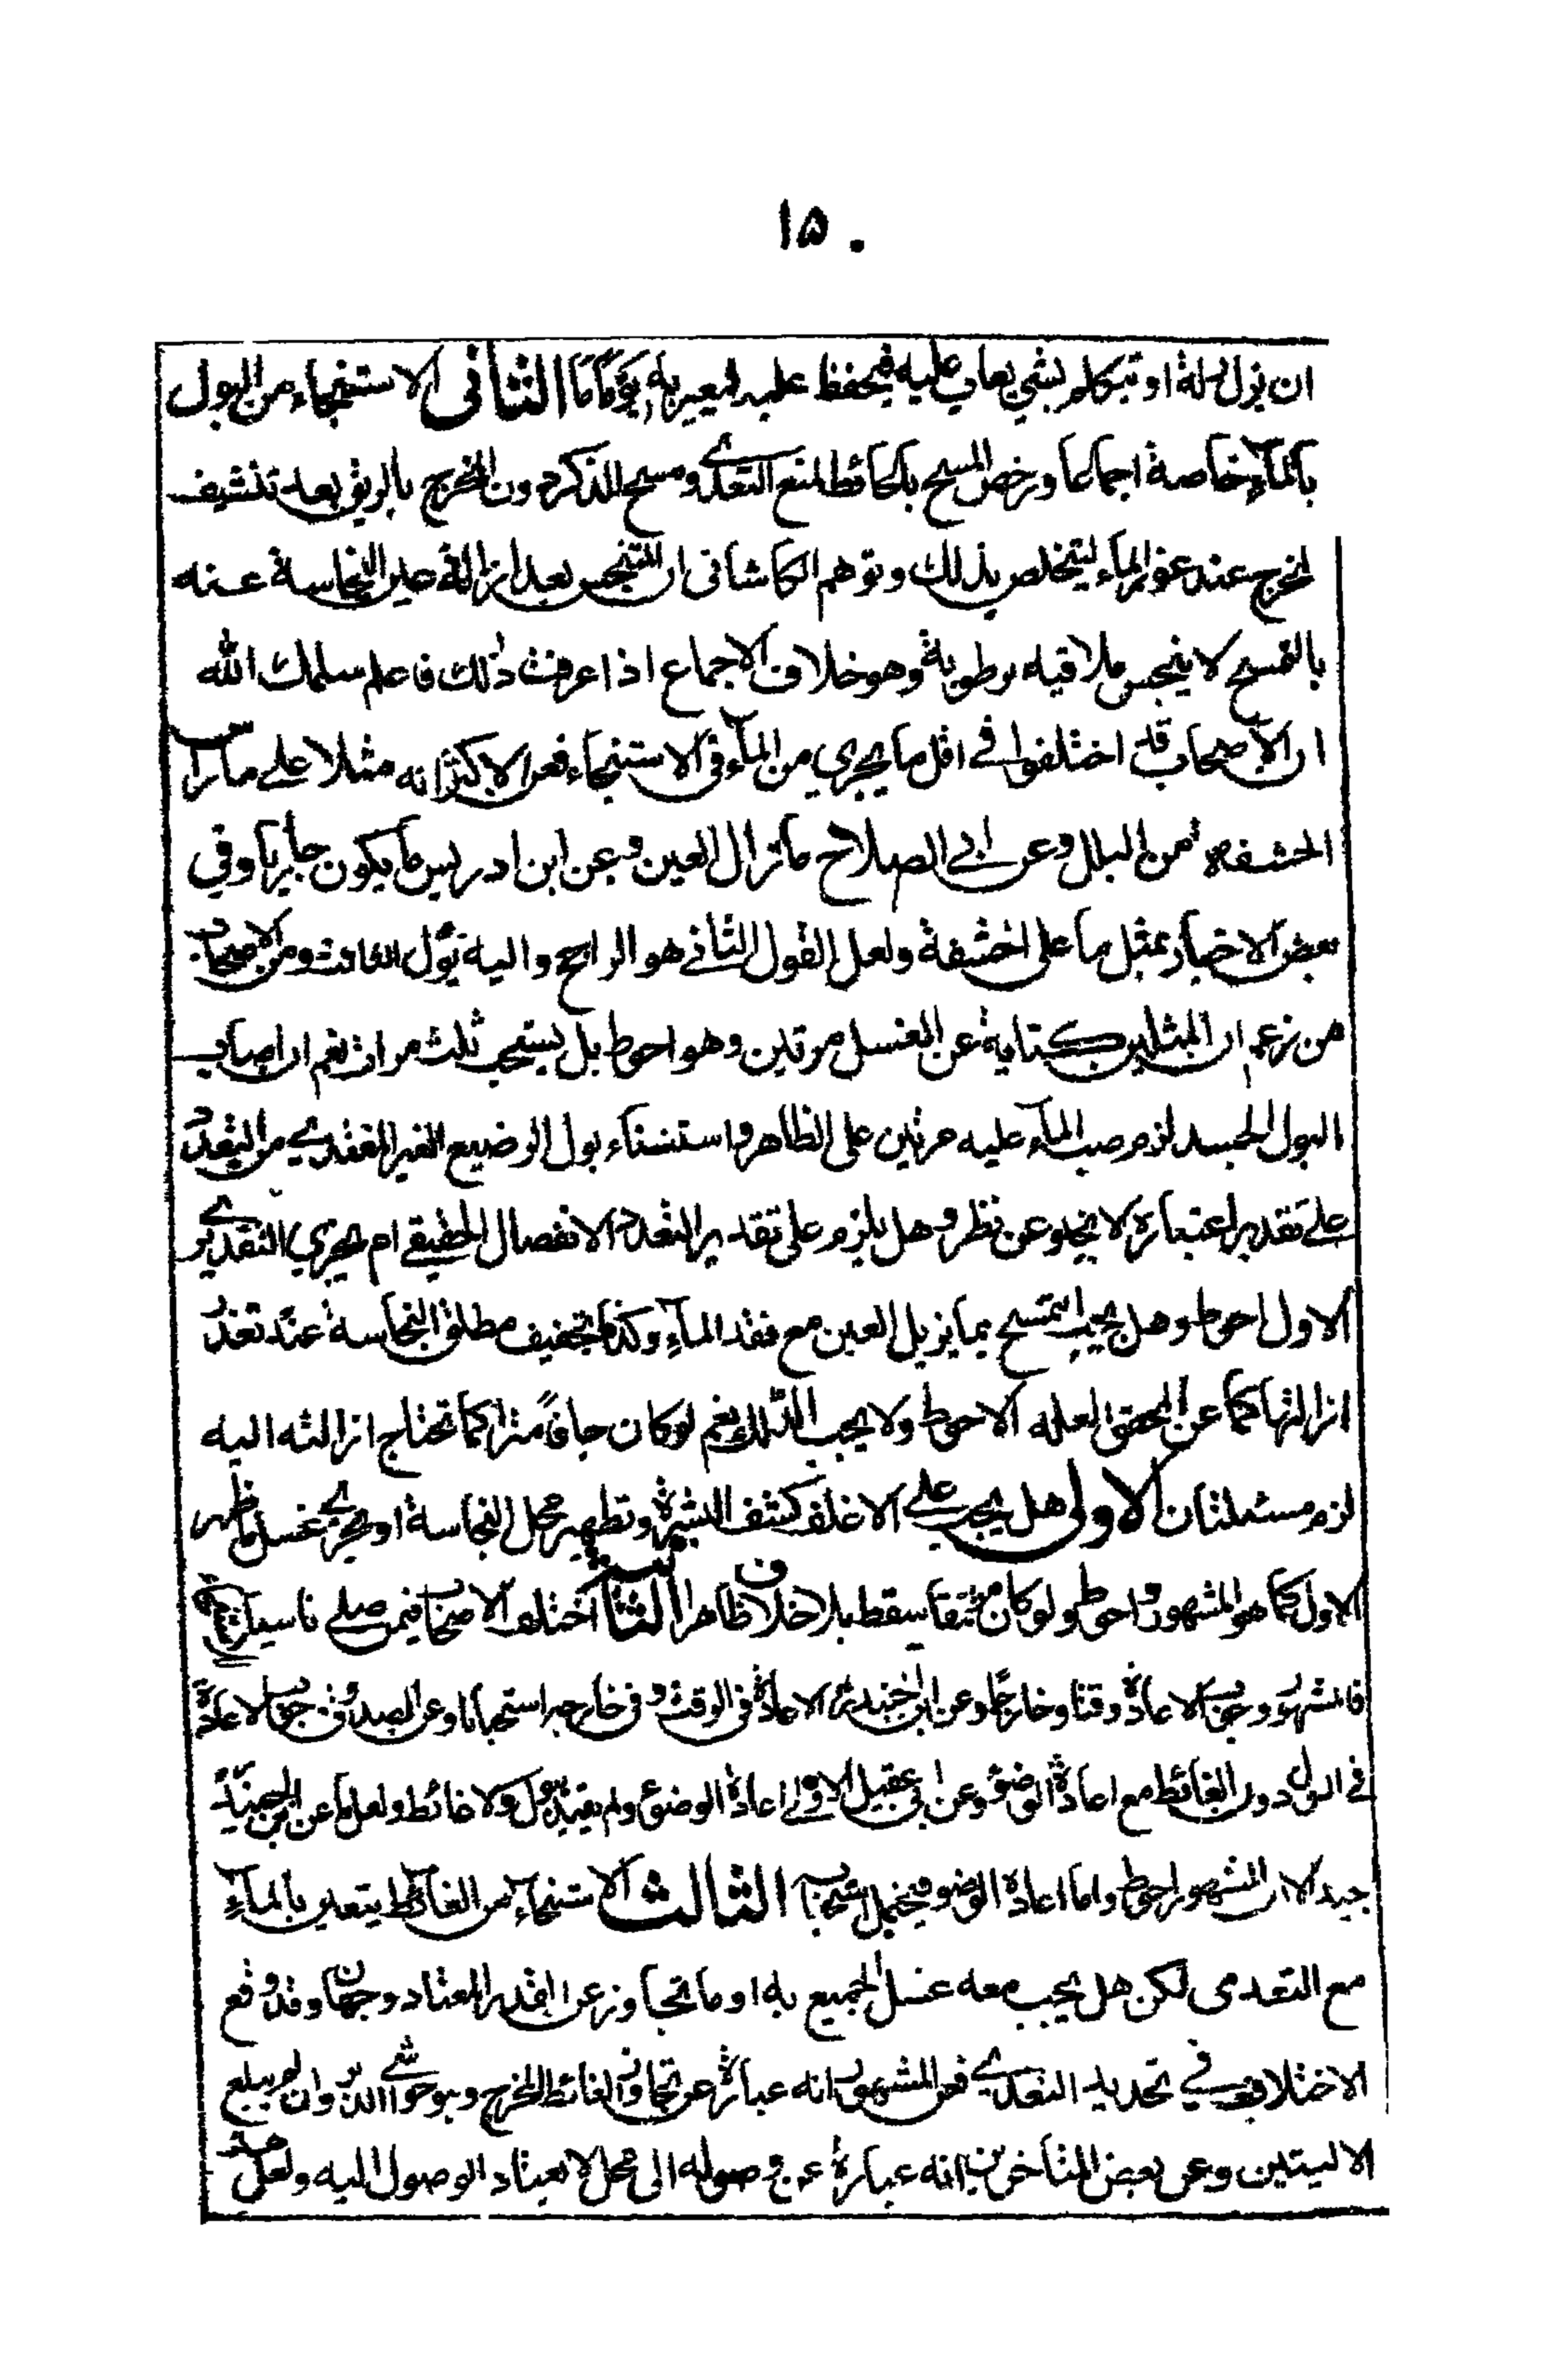 ١٥٠
ان يزل زلة او تتكلم بشئ يعاب عليه فيحفظ عليه ليعير به يوما ما الثاني الاستنجاء من البول
بالماء خاصة اجماعا ورخص المسح بالحائط لمنع التعدي ومسح الذكر دون المخرج بالريق بعد تنشيف
المخرج عند عوز الماء ليتخلص بذلك وتوهم الكاشاني ان المتنجس بعد ازالة عين النجاسة عنه
بالتمسح لا ينجس ملاقيه برطوبة وهو خلاف الاجماع اذا عرفت ذلك فاعلم سلمك الله
ان الاصحاب قد اختلفوا في اقل ما يجزي من الماء في الاستنجاء فعن الاكثر انه مثلا على ما رأس
الحشفة من البلل وعن ابي الصلاح ما ازال العين وعن ابن ادريس ما يكون جاريا وفي
بعض الاخبار بمثل ما على الحشفة ولعل القول الثاني هو الراجح واليه يؤل الثالث ومن الاصحاب
من زعم ان المثلين كناية عن الغسل مرتين وهو احوط بل يستحب ثلث مرات نعم ان اصاب
البول الجسد لزم صب الماء عليه مرتين على الظاهر واستثناء بول الرضيع الغير المغتذي من التعدد
على تقدير اعتباره لا يخلو عن نظر وهل يلزم على تقدير التعدد الانفصال الحقيقي ام يجزي التقديري
الاول احوط وهل يجب التمسح بما يزيل العين مع فقد الماء وكذا تخفيف مطلق النجاسة عند تعذر
ازالتها كما عن المحقق لعله الاحوط ولا يجب الدلك نعم لو كان جافا متراكما تحتاج ازالته اليه
لزم مسئلتان الاولى هل يجب على الاغلف كشف البشرة وتطهير محل النجاسة او يجزي غسل ما ظهر
الاول كما هو المشهور احوط ولو كان مرتتقا سقط بلا خلاف ظاهرا الثانية اختلف الاصحاب فيمن صلى ناسيا
فالمشهور وجوب الاعادة وقتا وخارجا وعن ابن الجنيد الاعادة في الوقت وفي خارجه استحبابا وعن الصدوق وجوب الاعادة
في البول دون الغائط مع اعادة الوضوء وعن ابن ابي عقيل الاولى اعادة الوضوء ولم يقيد ببول ولا غائط ولعل ما عن ابن الجنيد
جيد الا ان المشهور احوط واما اعادة الوضوء فيحتمل استحبابها الثالث الاستنجاء من الغائط يتعين بالماء
مع التعدي لكن هل يجب معه غسل الجميع به او ما تجاوز عن القدر المعتاد وجهان وقد وقع
الاختلاف في تحديد التعدي فعن المشهور انه عبارة عن تجاوز الغائط المخرج وهو حواشي الدبر وان لم يبلغ
الاليتين وعن بعض المتاخرين انه عبارة عن وصوله الى محل لا يعتاد الوصول اليه ولعل